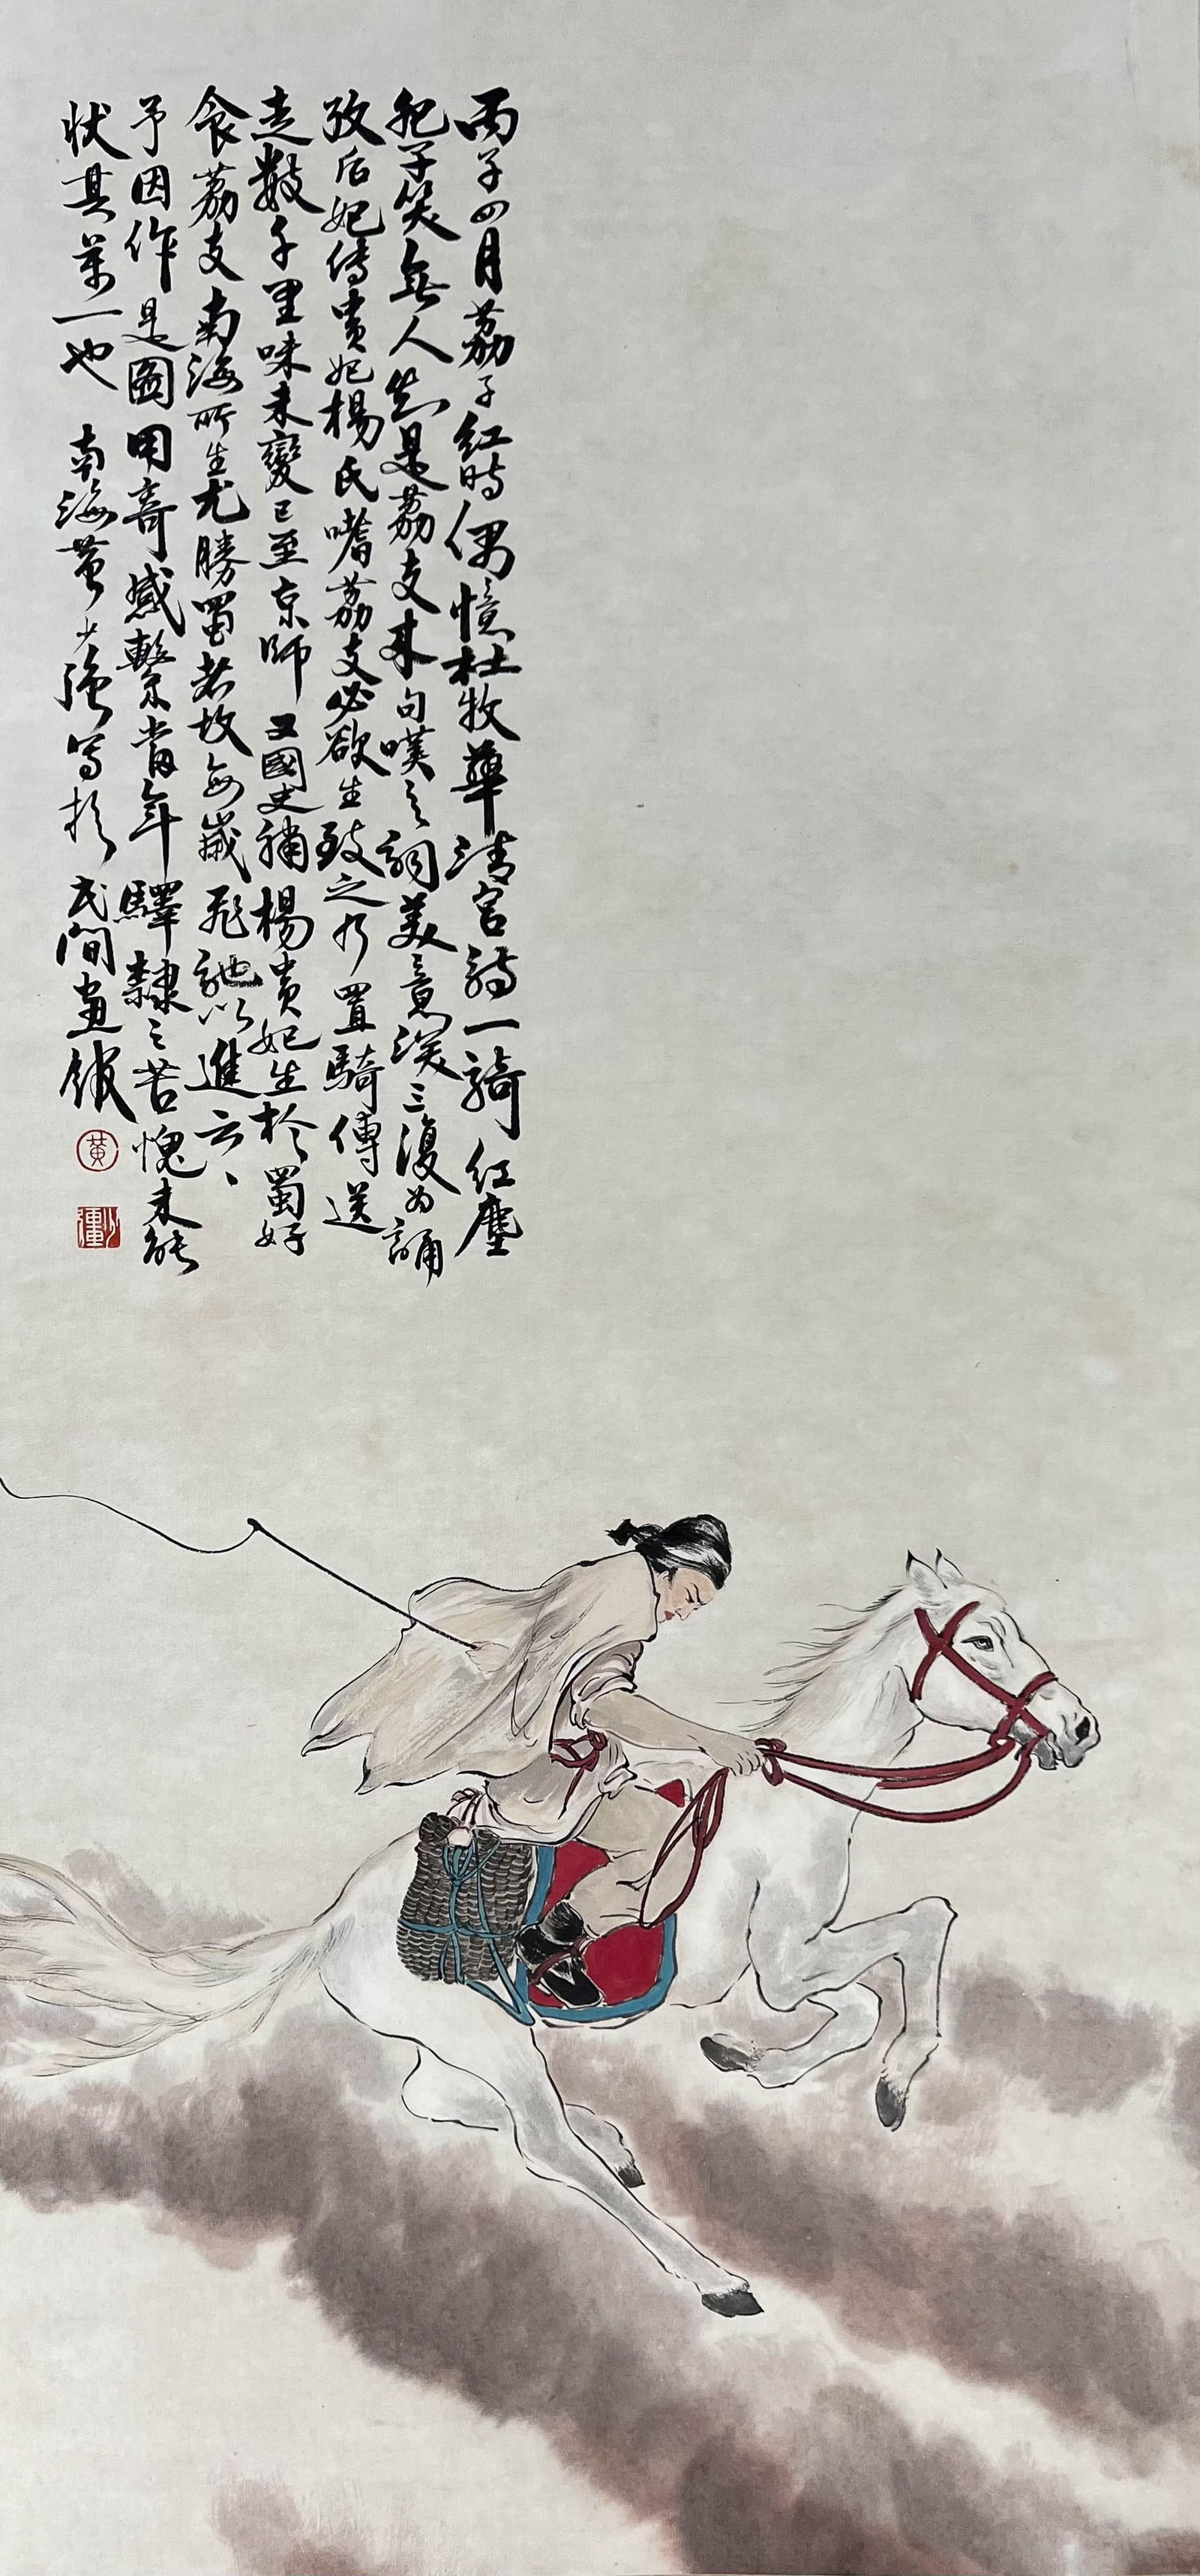 丙子四月荔子紅時偶憶杜牧華清宮詩一騎紅塵
妃子笑無人知是荔支来句嘆之詞美意深三復為誦
攷后妃傳貴妃楊氏嗜荔支必欲生致之乃置騎傳送
走數千里味未變已至京師又國史補楊貴妃生於蜀好
食荔支南海所生尤勝蜀者故每歲飛馳以進云、
予因作是圖用寄感繫當年驛隸之苦愧未能
状其萬一也 南海黄少強写於民間画館
黄
少彊